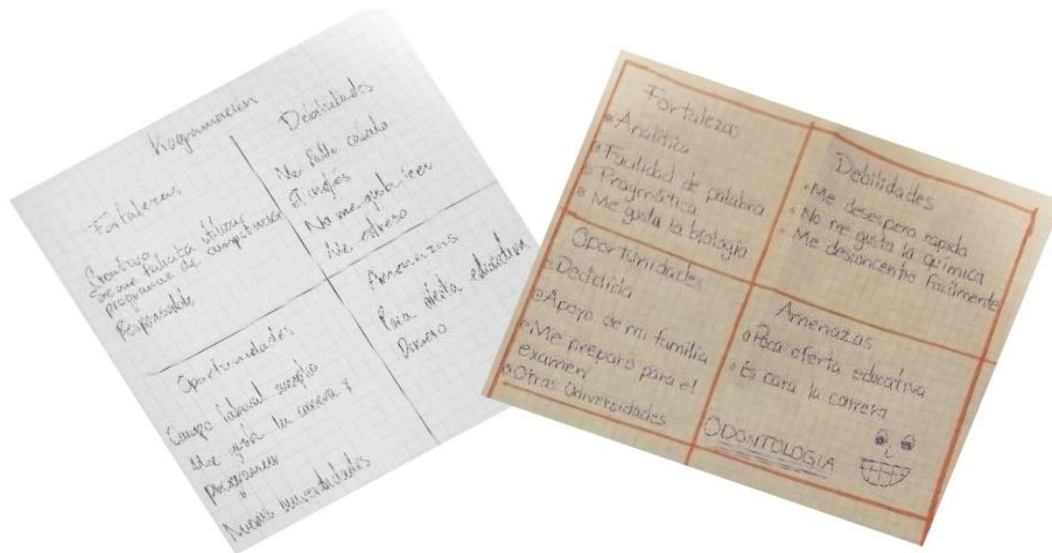 Programación
Fortalezas
Creativo
Se me facilita utilizar
programas de computación
Responsable
Debilidades
Me falta
El inglés
No me gusta leer
Me estreso
Oportunidades
Campo laboral amplio
Me gusta la carrera y
Nuevas universidades
Amenazas
Poca oferta educativa
Dinero
Fortalezas
Analítica
Facilidad de palabra
Pragmática
Me gusta la biología
Debilidades
Me desespero rapido
No me gusta la química
Me desconcentro facilmente
Oportunidades
Decidida
Apoyo de mi familia
Me preparo para el
examen
Otras Universidades
Amenazas
Poca oferta educativa
Es cara la carrera
ODONTOLOGIA